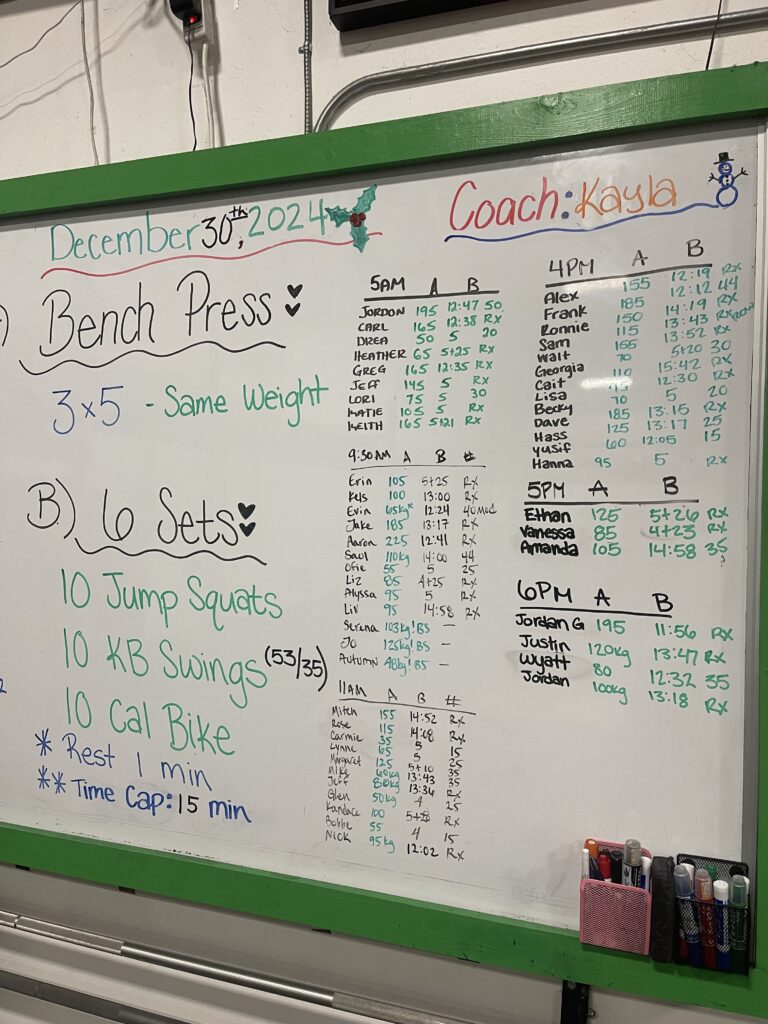 December 30th, 2024
Coach: Kayla
Bench Press
3x5 - Same Weight
B.) 6 Sets
10 Jump Squats
10 KB Swings (53/35)
10 Cal Bike
* Rest 1 min
** Time Cap: 15 min
5AM A B
JORDON 195 12:47 50
CARL 165 12:38 Rx
DREA 50 5 20
HEATHER 65 5+25 Rx
GREG 165 12:35 Rx
JEFF 145 5 Rx
LORI 75 5 30
KATIE 105 5 Rx
KEITH 165 5+21 Rx
9:30AM A B #
Erin 105 5+25 Rx
Kels 100 13:00 Rx
Evin 65kg* 12:24 40 Mod
Jake 185 13:17 Rx
Aaron 225 12:41 Rx
Saul 110kg 14:00 44
Ofie 55 5 25
Liz 85 4+25 Rx
Alyssa 95 5 Rx
Liv 95 14:58 Rx
Serena 103kg! BS —
Jo 125kg! BS —
Autumn 98kg! BS —
11AM A B #
Mitch 155 14:52 Rx
Rose 115 14:08 Rx
Carmie 35 5 15
Lynne 65 5 25
Margaret 125 5+10 35
Mike 60kg 13:43 35
Jeff 80kg 13:36 Rx
Glen 50kg 4 25
Kandace 100 Rx
Bobbie 55 4 15
Nick 95kg 12:02 Rx
4PM A B
Alex 155 12:19 Rx
Frank 185 12:12 44
Ronnie 150 14:19 Rx
Sam 115 13:43 Rx
Walt 155 13:52 Rx
Georgia 70 5+20 30
Cait 110 15:42 Rx
Lisa 12:30 Rx
Becky 70 5 20
Dave 185 13:15 Rx
Hass 125 13:17 25
Yusif 60 12:05 15
Hanna 95 5 Rx
5PM A B
Ethan 125 5+26 Rx
Vanessa 85 4+23 Rx
Amanda 105 14:58 35
6PM A B
Jordan G 195 11:56 Rx
Justin 120kg 13:47 Rx
Wyatt 80 12:32 35
Jordan 100kg 13:18 Rx